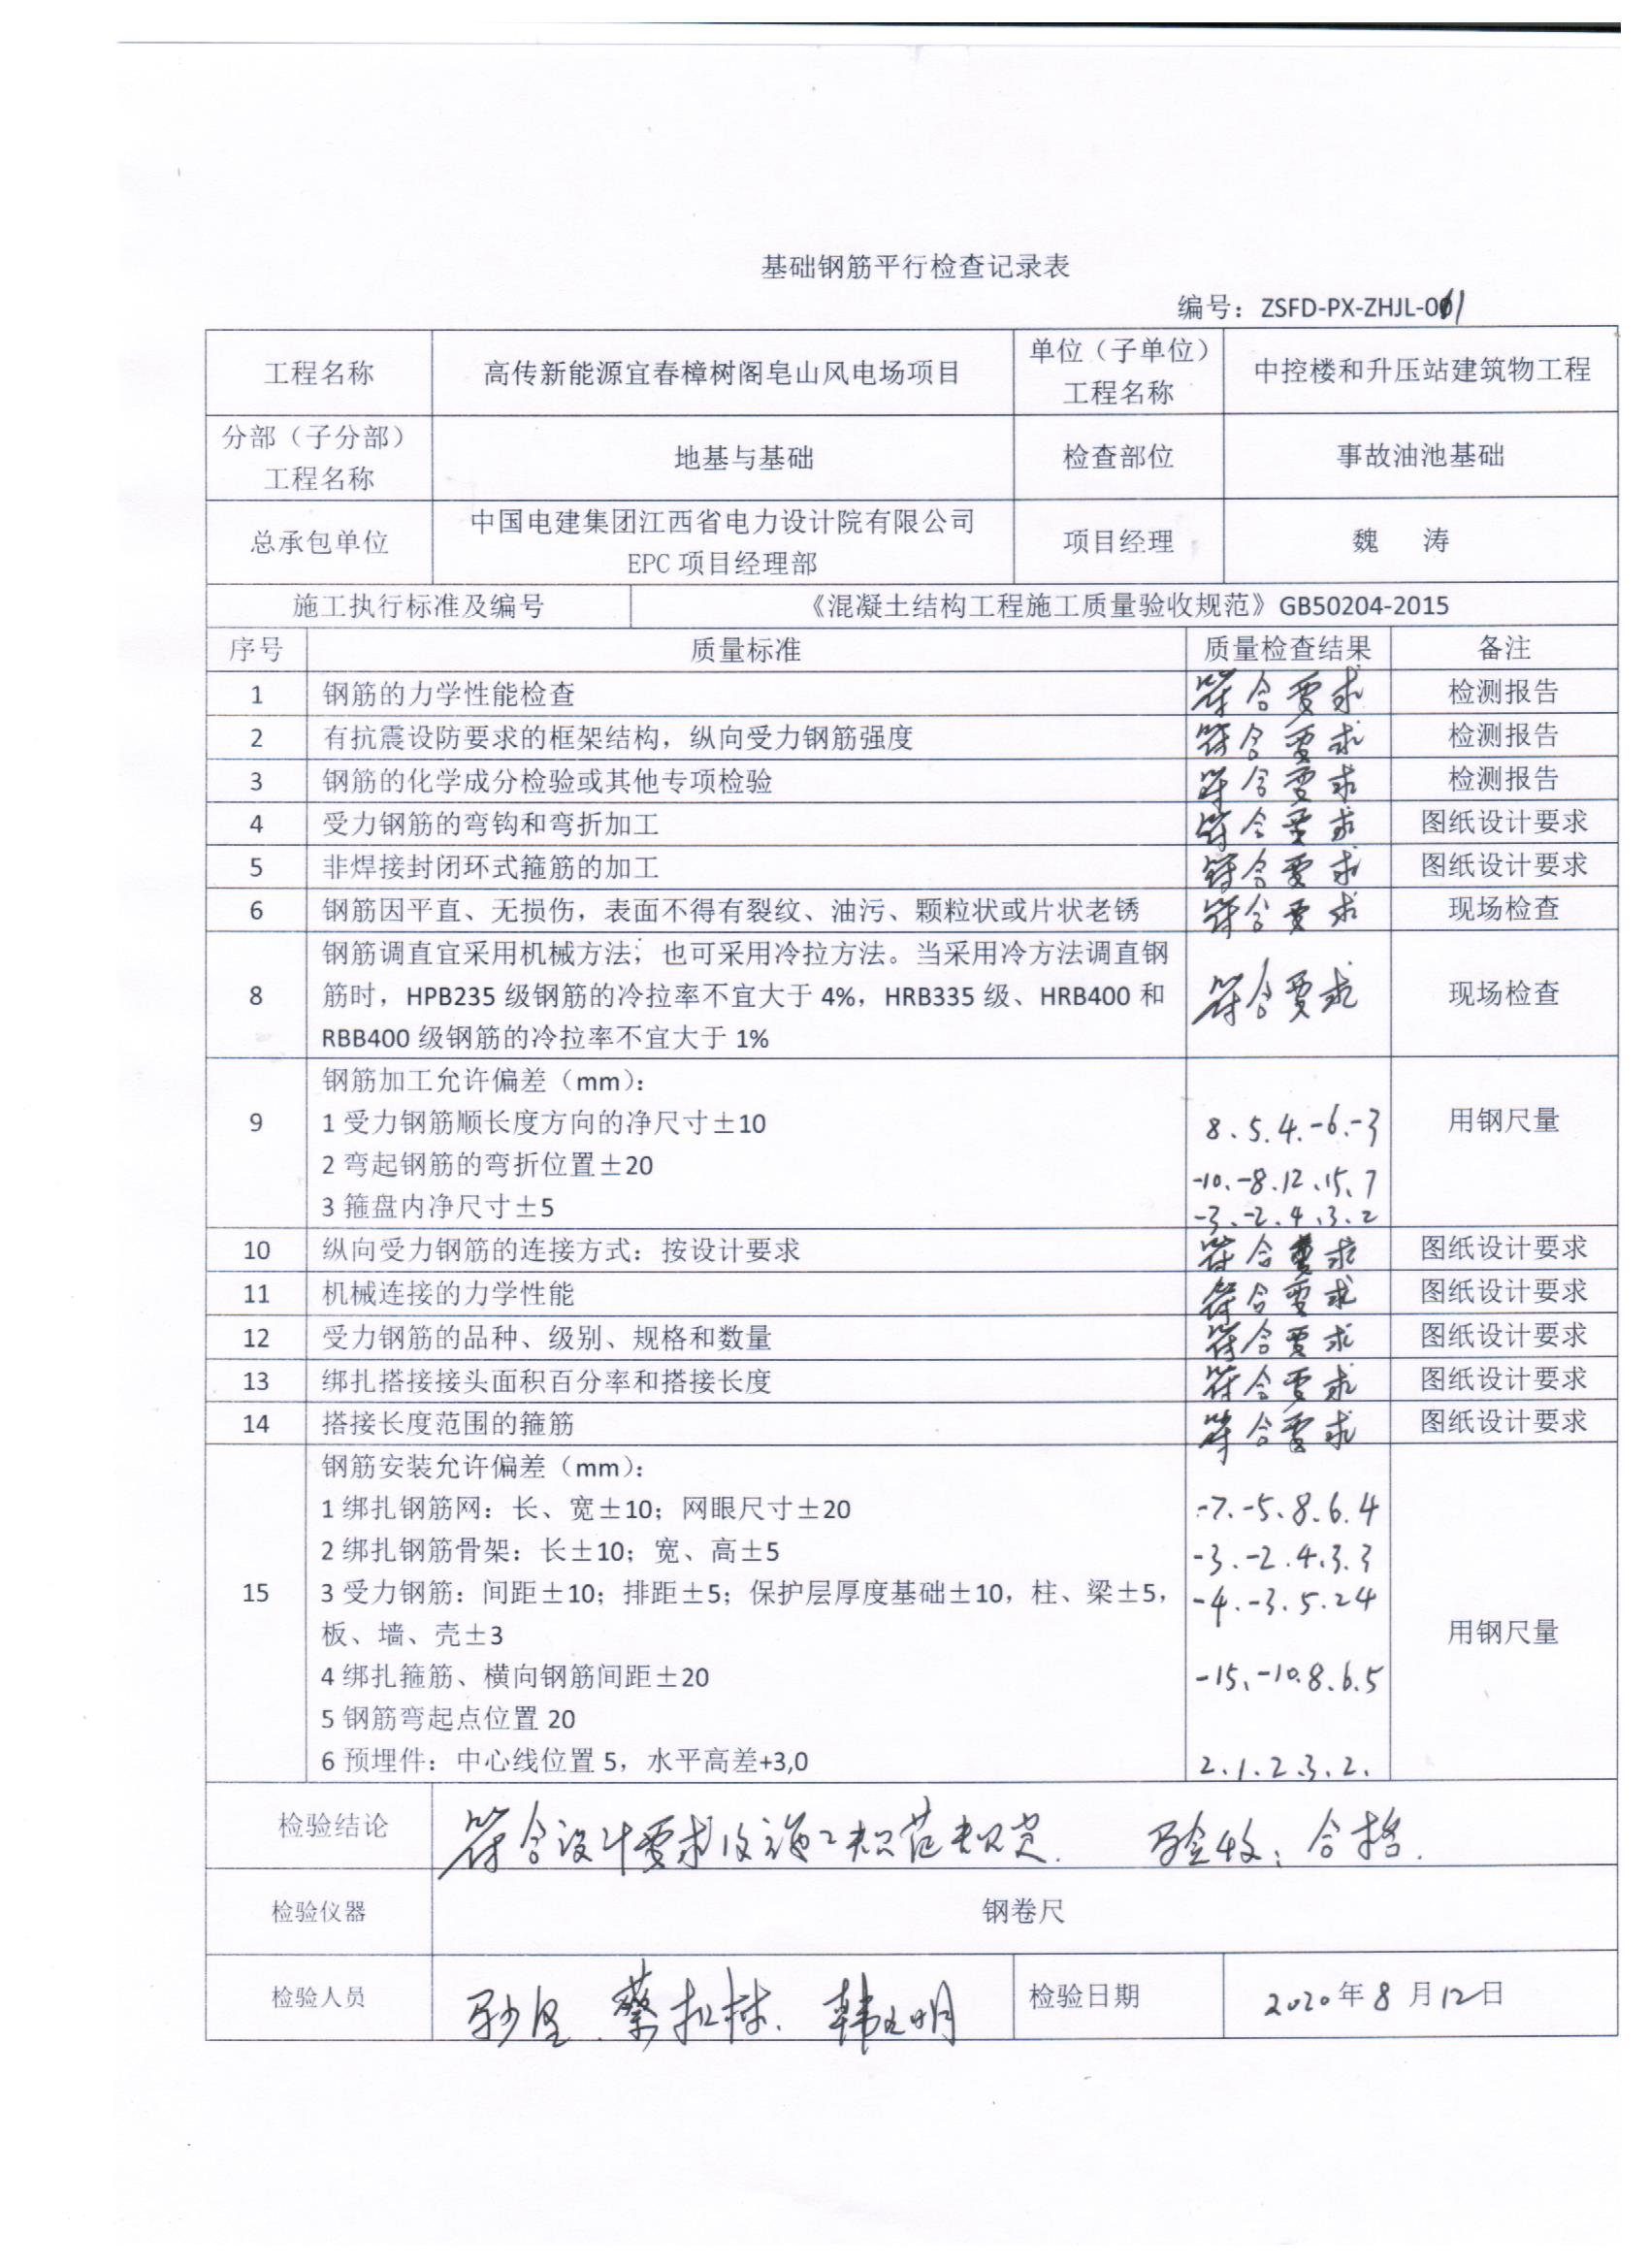 基础钢筋平行检查记录表
编号：ZSFD-PX-ZHJL-011
工程名称 高传新能源宜春樟树阁皂山风电场项目 单位（子单位）工程名称 中控楼和升压站建筑物工程
分部（子分部）工程名称 地基与基础 检查部位 事故油池基础
总承包单位 中国电建集团江西省电力设计院有限公司 EPC 项目经理部 项目经理 魏 涛
施工执行标准及编号 《混凝土结构工程施工质量验收规范》GB50204-2015
序号 质量标准 质量检查结果 备注
1 钢筋的力学性能检查 符合要求 检测报告
2 有抗震设防要求的框架结构，纵向受力钢筋强度 符合要求 检测报告
3 钢筋的化学成分检验或其他专项检验 符合要求 检测报告
4 受力钢筋的弯钩和弯折加工 符合要求 图纸设计要求
5 非焊接封闭环式箍筋的加工 符合要求 图纸设计要求
6 钢筋因平直、无损伤，表面不得有裂纹、油污、颗粒状或片状老锈 符合要求 现场检查
钢筋调直宜采用机械方法；也可采用冷拉方法。当采用冷方法调直钢
8 筋时，HPB235 级钢筋的冷拉率不宜大于 4%，HRB335 级、HRB400 和 符合要求 现场检查
RBB400 级钢筋的冷拉率不宜大于 1%
钢筋加工允许偏差（mm）：
9 1 受力钢筋顺长度方向的净尺寸±10 8、5、4、-6、-3 用钢尺量
2 弯起钢筋的弯折位置±20 -10、-8、12、15、7
3 箍盘内净尺寸±5 -3、-2、4、3、2
10 纵向受力钢筋的连接方式：按设计要求 符合要求 图纸设计要求
11 机械连接的力学性能 符合要求 图纸设计要求
12 受力钢筋的品种、级别、规格和数量 符合要求 图纸设计要求
13 绑扎搭接接头面积百分率和搭接长度 符合要求 图纸设计要求
14 搭接长度范围的箍筋 符合要求 图纸设计要求
钢筋安装允许偏差（mm）：
1 绑扎钢筋网：长、宽±10；网眼尺寸±20 -7、-5、8、6、4
2 绑扎钢筋骨架：长±10；宽、高±5 -3、-2、4、3、3
15 3 受力钢筋：间距±10；排距±5；保护层厚度基础±10，柱、梁±5， -4、-3、5、2 4
板、墙、壳±3 用钢尺量
4 绑扎箍筋、横向钢筋间距±20 -15、-10、8、6、5
5 钢筋弯起点位置 20
6 预埋件：中心线位置 5，水平高差+3,0 2、1、2、3、2、
检验结论 符合设计要求及施工规范规定. 验收：合格.
检验仪器 钢卷尺
检验人员 检验日期 2020 年 8 月 12 日